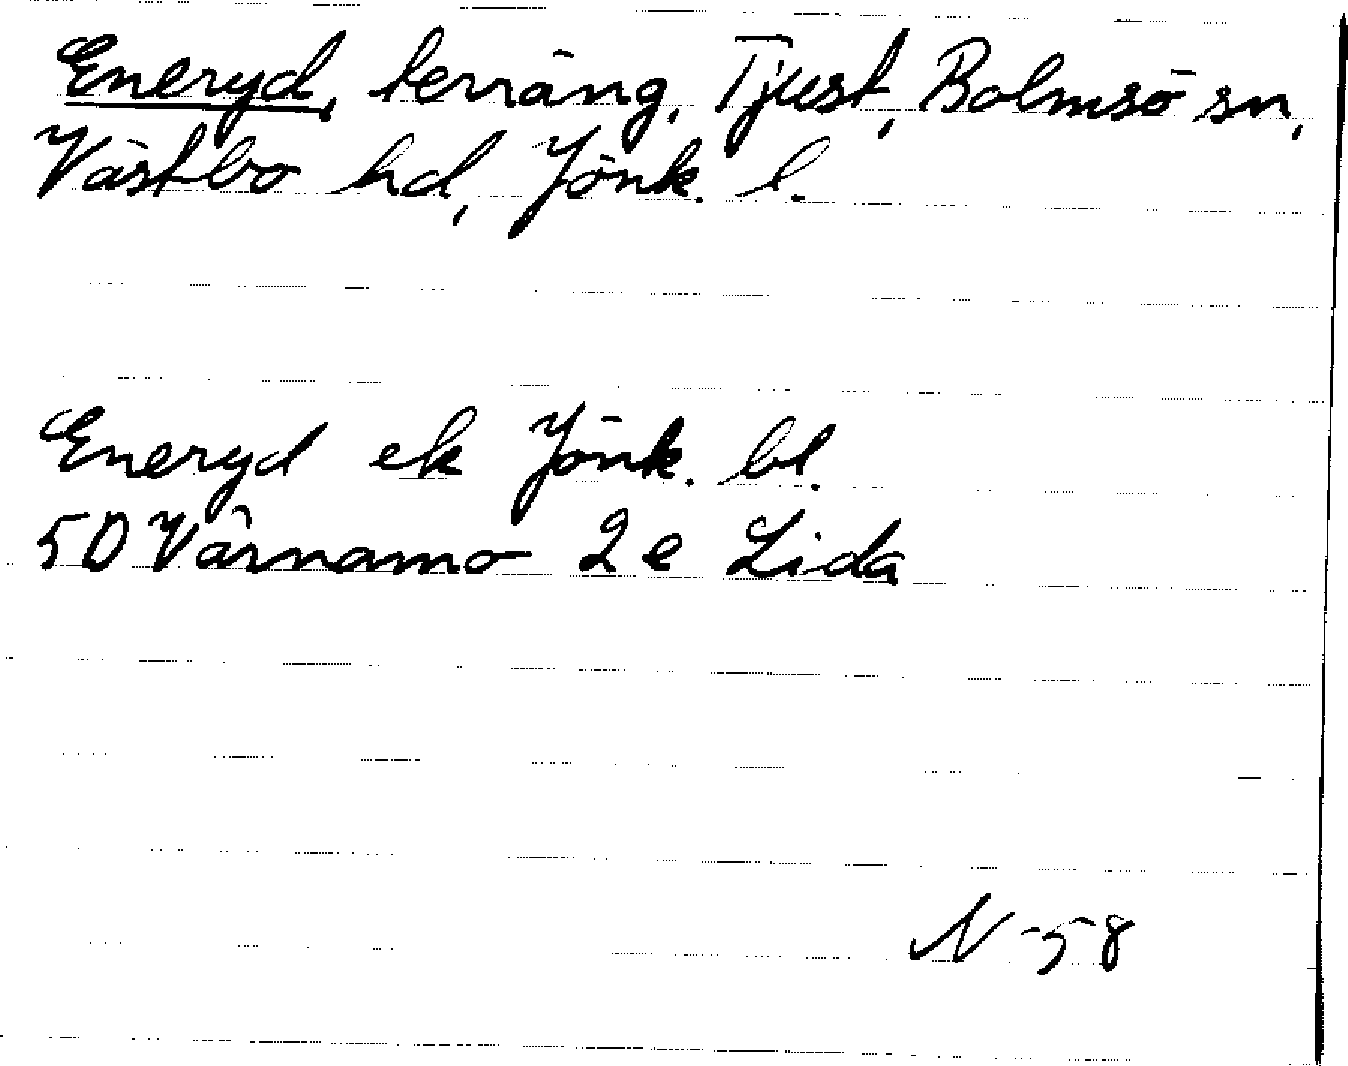 Eneryd, terräng, Tjust, Bolmsö sn,
Västbo hd, Jönk. l.
Eneryd ek Jönk. bl.
5D Värnamo 2 e Lida
N -58